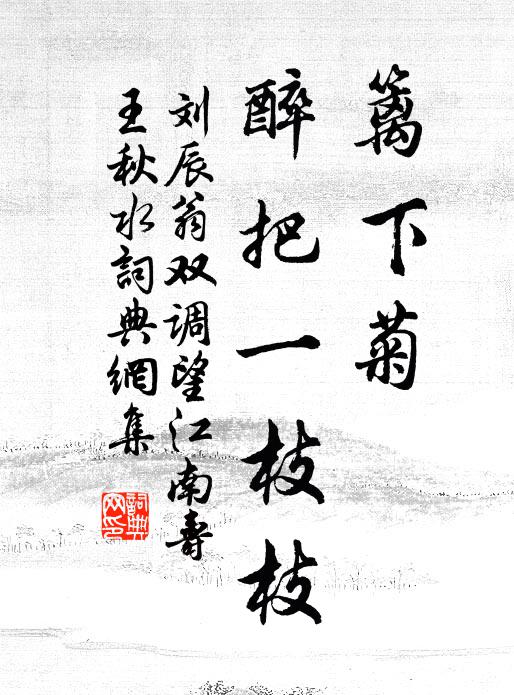 篱下菊
醉把一枝枝
刘辰翁双调望江南寿
王秋水詞典網集
詞典网印